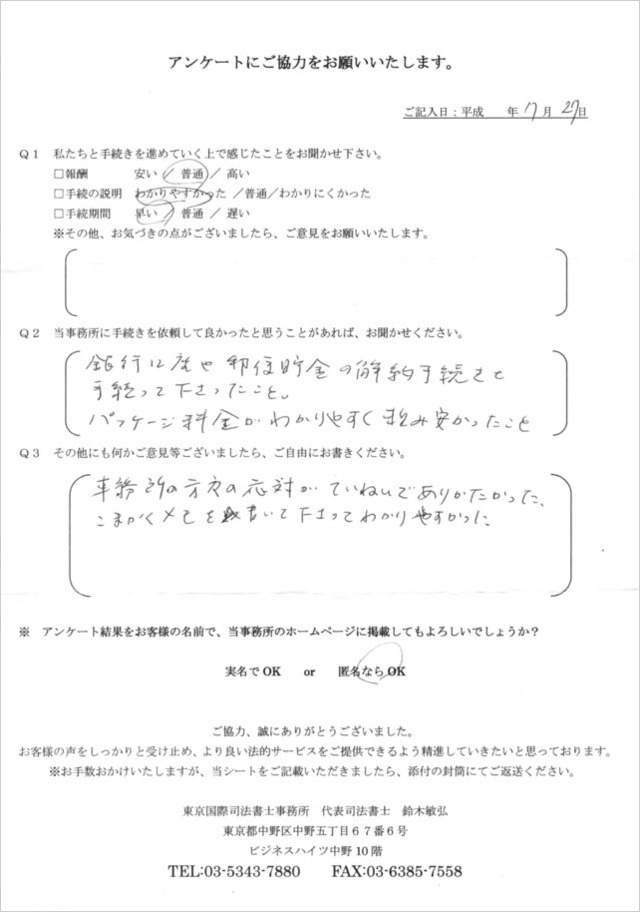 アンケートにご協力をお願いいたします。
ご記入日：平成　　年 17月 27日
Q1 私たちと手続きを進めていく上で感じたことをお聞かせ下さい。
□報酬　安い / 普通 / 高い
□手続の説明　わかりやすかった /普通/わかりにくかった
□手続期間　早い / 普通 / 遅い
※その他、お気づきの点がございましたら、ご意見をお願いいたします。
Q2 当事務所に手続きを依頼して良かったと思うことがあれば、お聞かせください。
銀行口座や郵便貯金の解約手続きも
手続って下さったこと。
パッケージ料金がわかりやすく頼み安かったこと
Q3 その他にも何かご意見等ございましたら、ご自由にお書きください。
事務所の方々の応対がていねいでありがたかった、
こまかくメモを書いて下さってわかりやすかった
※ アンケート結果をお客様の名前で、当事務所のホームページに掲載してもよろしいでしょうか？
実名でOK　or　匿名ならOK
ご協力、誠にありがとうございました。
お客様の声をしっかりと受け止め、より良い法的サービスをご提供できるよう精進していきたいと思っております。
※お手数おかけいたしますが、当シートをご記載いただきましたら、添付の封筒にてご返送ください。
東京国際司法書士事務所　代表司法書士　鈴木敏弘
東京都中野区中野五丁目６７番６号
ビジネスハイツ中野10階
TEL:03-5343-7880　FAX:03-6385-7558